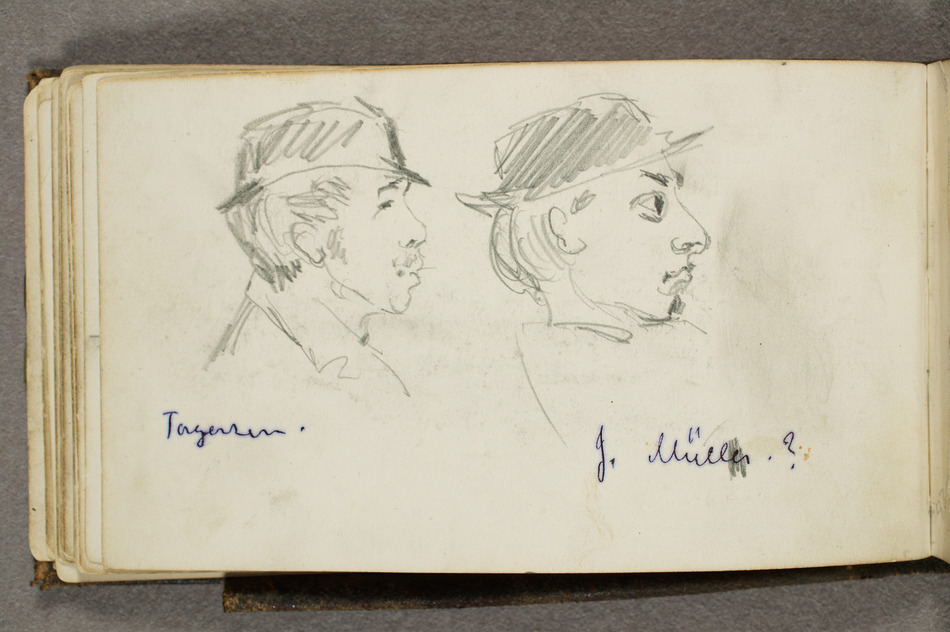 Torgersen.
J. Müller. ?